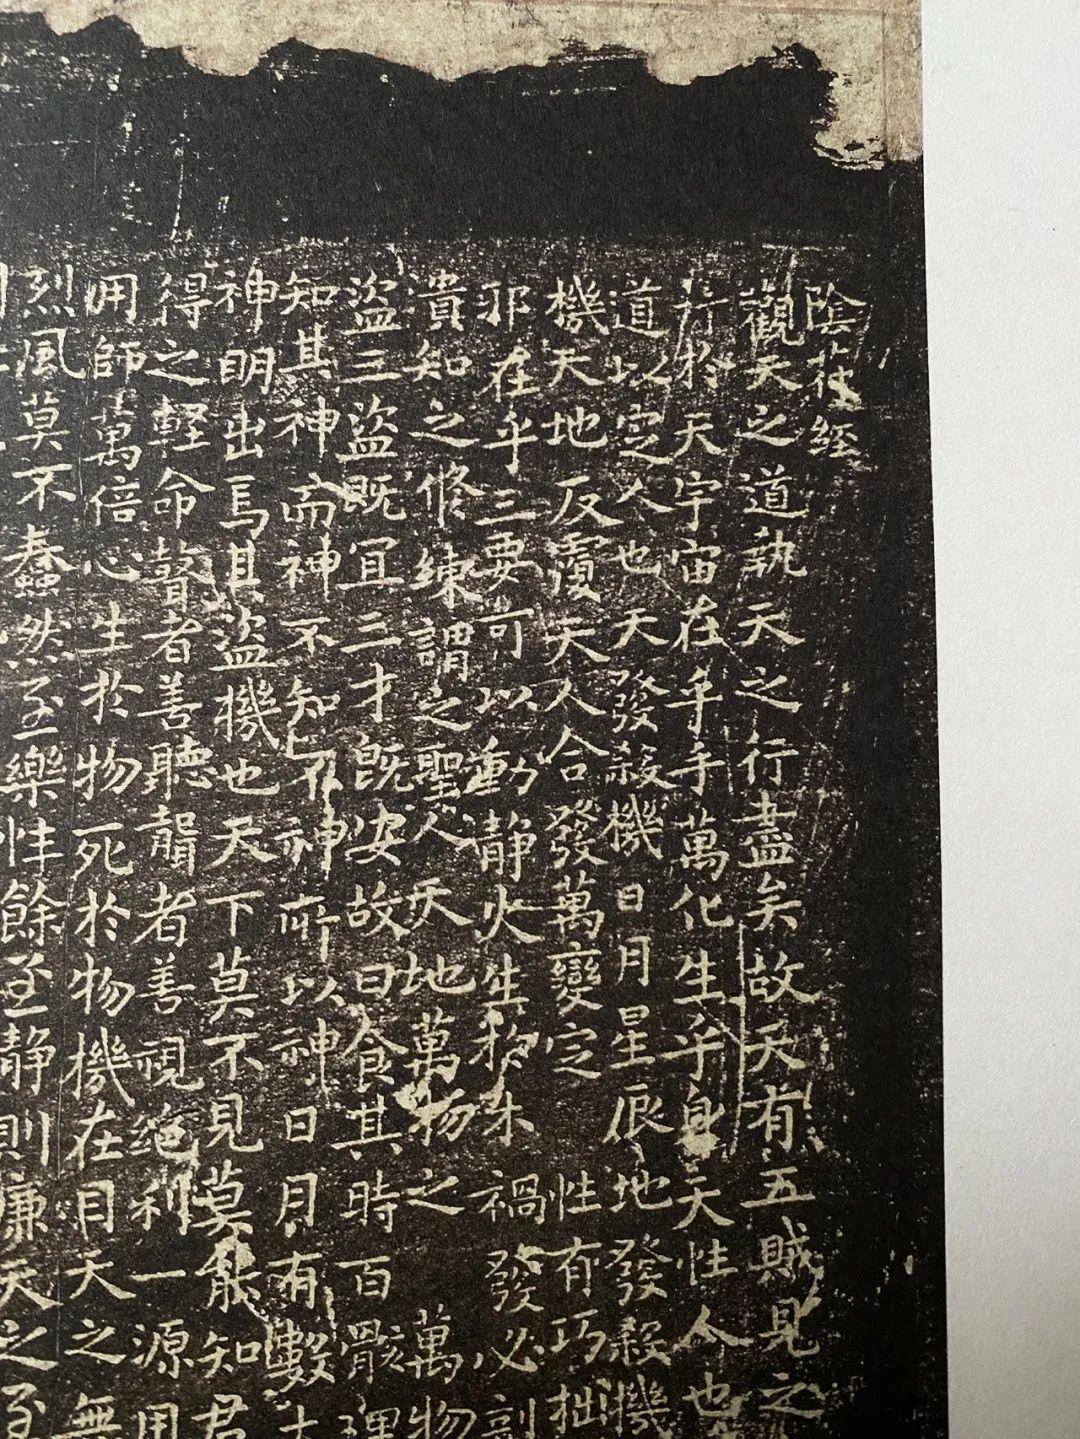 陰符經
觀天之道執天之行盡矣故天有五賊見之
行於天宇宙在乎手萬化生乎身天性人也
道以定人也天發殺機日月星辰地發殺機
機天地反覆天人合發萬變定性有巧拙
邪在乎三要可以動靜火生於木禍發必剋
潰知之修練謂之聖人天地萬物之萬物
盜三盜既宜三才既安故曰食其時百骸理
知其神而神不知不神所以神日月有數
神明出焉其盜機也天下莫不見莫能知君
得之輕命瞽者善聽聾者善視絕利一源用
用師萬倍心生於物死於物機在目天之無
烈風莫不蠢然至樂性餘至靜則廉天之至